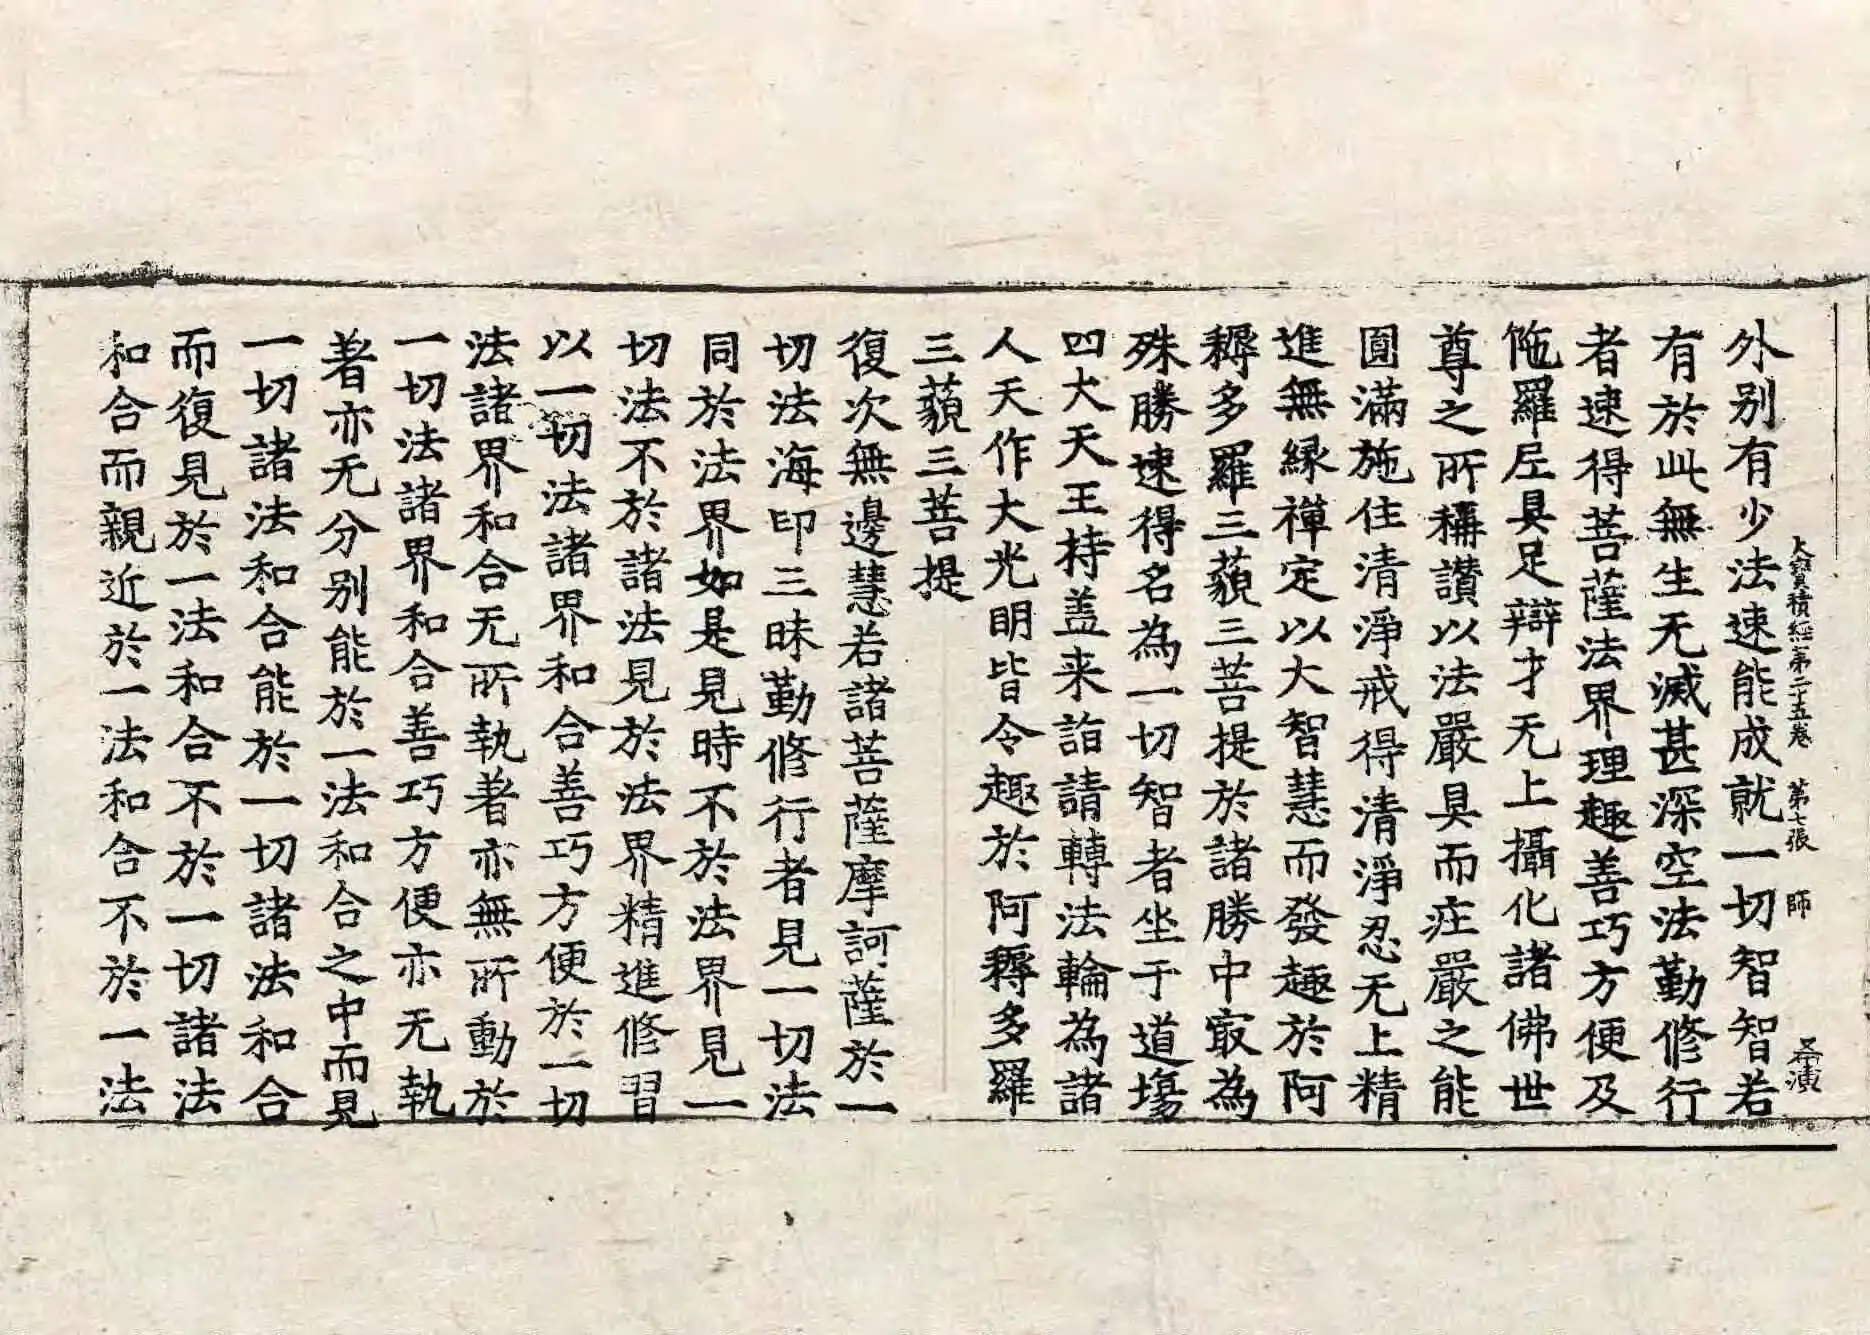 大寶積經第二十五卷 第七張 師
外別有少法速能成就一切智智若
有於此無生无滅甚深空法勤修行
者速得菩薩法界理趣善巧方便及
陁羅尼具足辯才无上攝化諸佛世
尊之所稱讃以法嚴具而庄嚴之能
圓滿施住清淨戒得清淨忍无上精
進無緣禪定以大智慧而發趣於阿
耨多羅三藐三菩提於諸勝中㝡為
殊勝速得名為一切智者坐于道塲
四大天王持盖来詣請轉法輪為諸
人天作大光明皆令趣於阿耨多羅
三藐三菩提
復次無邊慧若諸菩薩摩訶薩於一
切法海印三昧勤修行者見一切法
同於法界如是見時不於法界見一
切法不於諸法見於法界精進修習
以一切法諸界和合善巧方便於一切
法諸界和合无所執著亦無所動於
一切法諸界和合善巧方便亦无執
著亦无分別能於一法和合之中而見
一切諸法和合能於一切諸法和合
而復見於一法和合不於一切諸法
和合而親近於一法和合不於一法